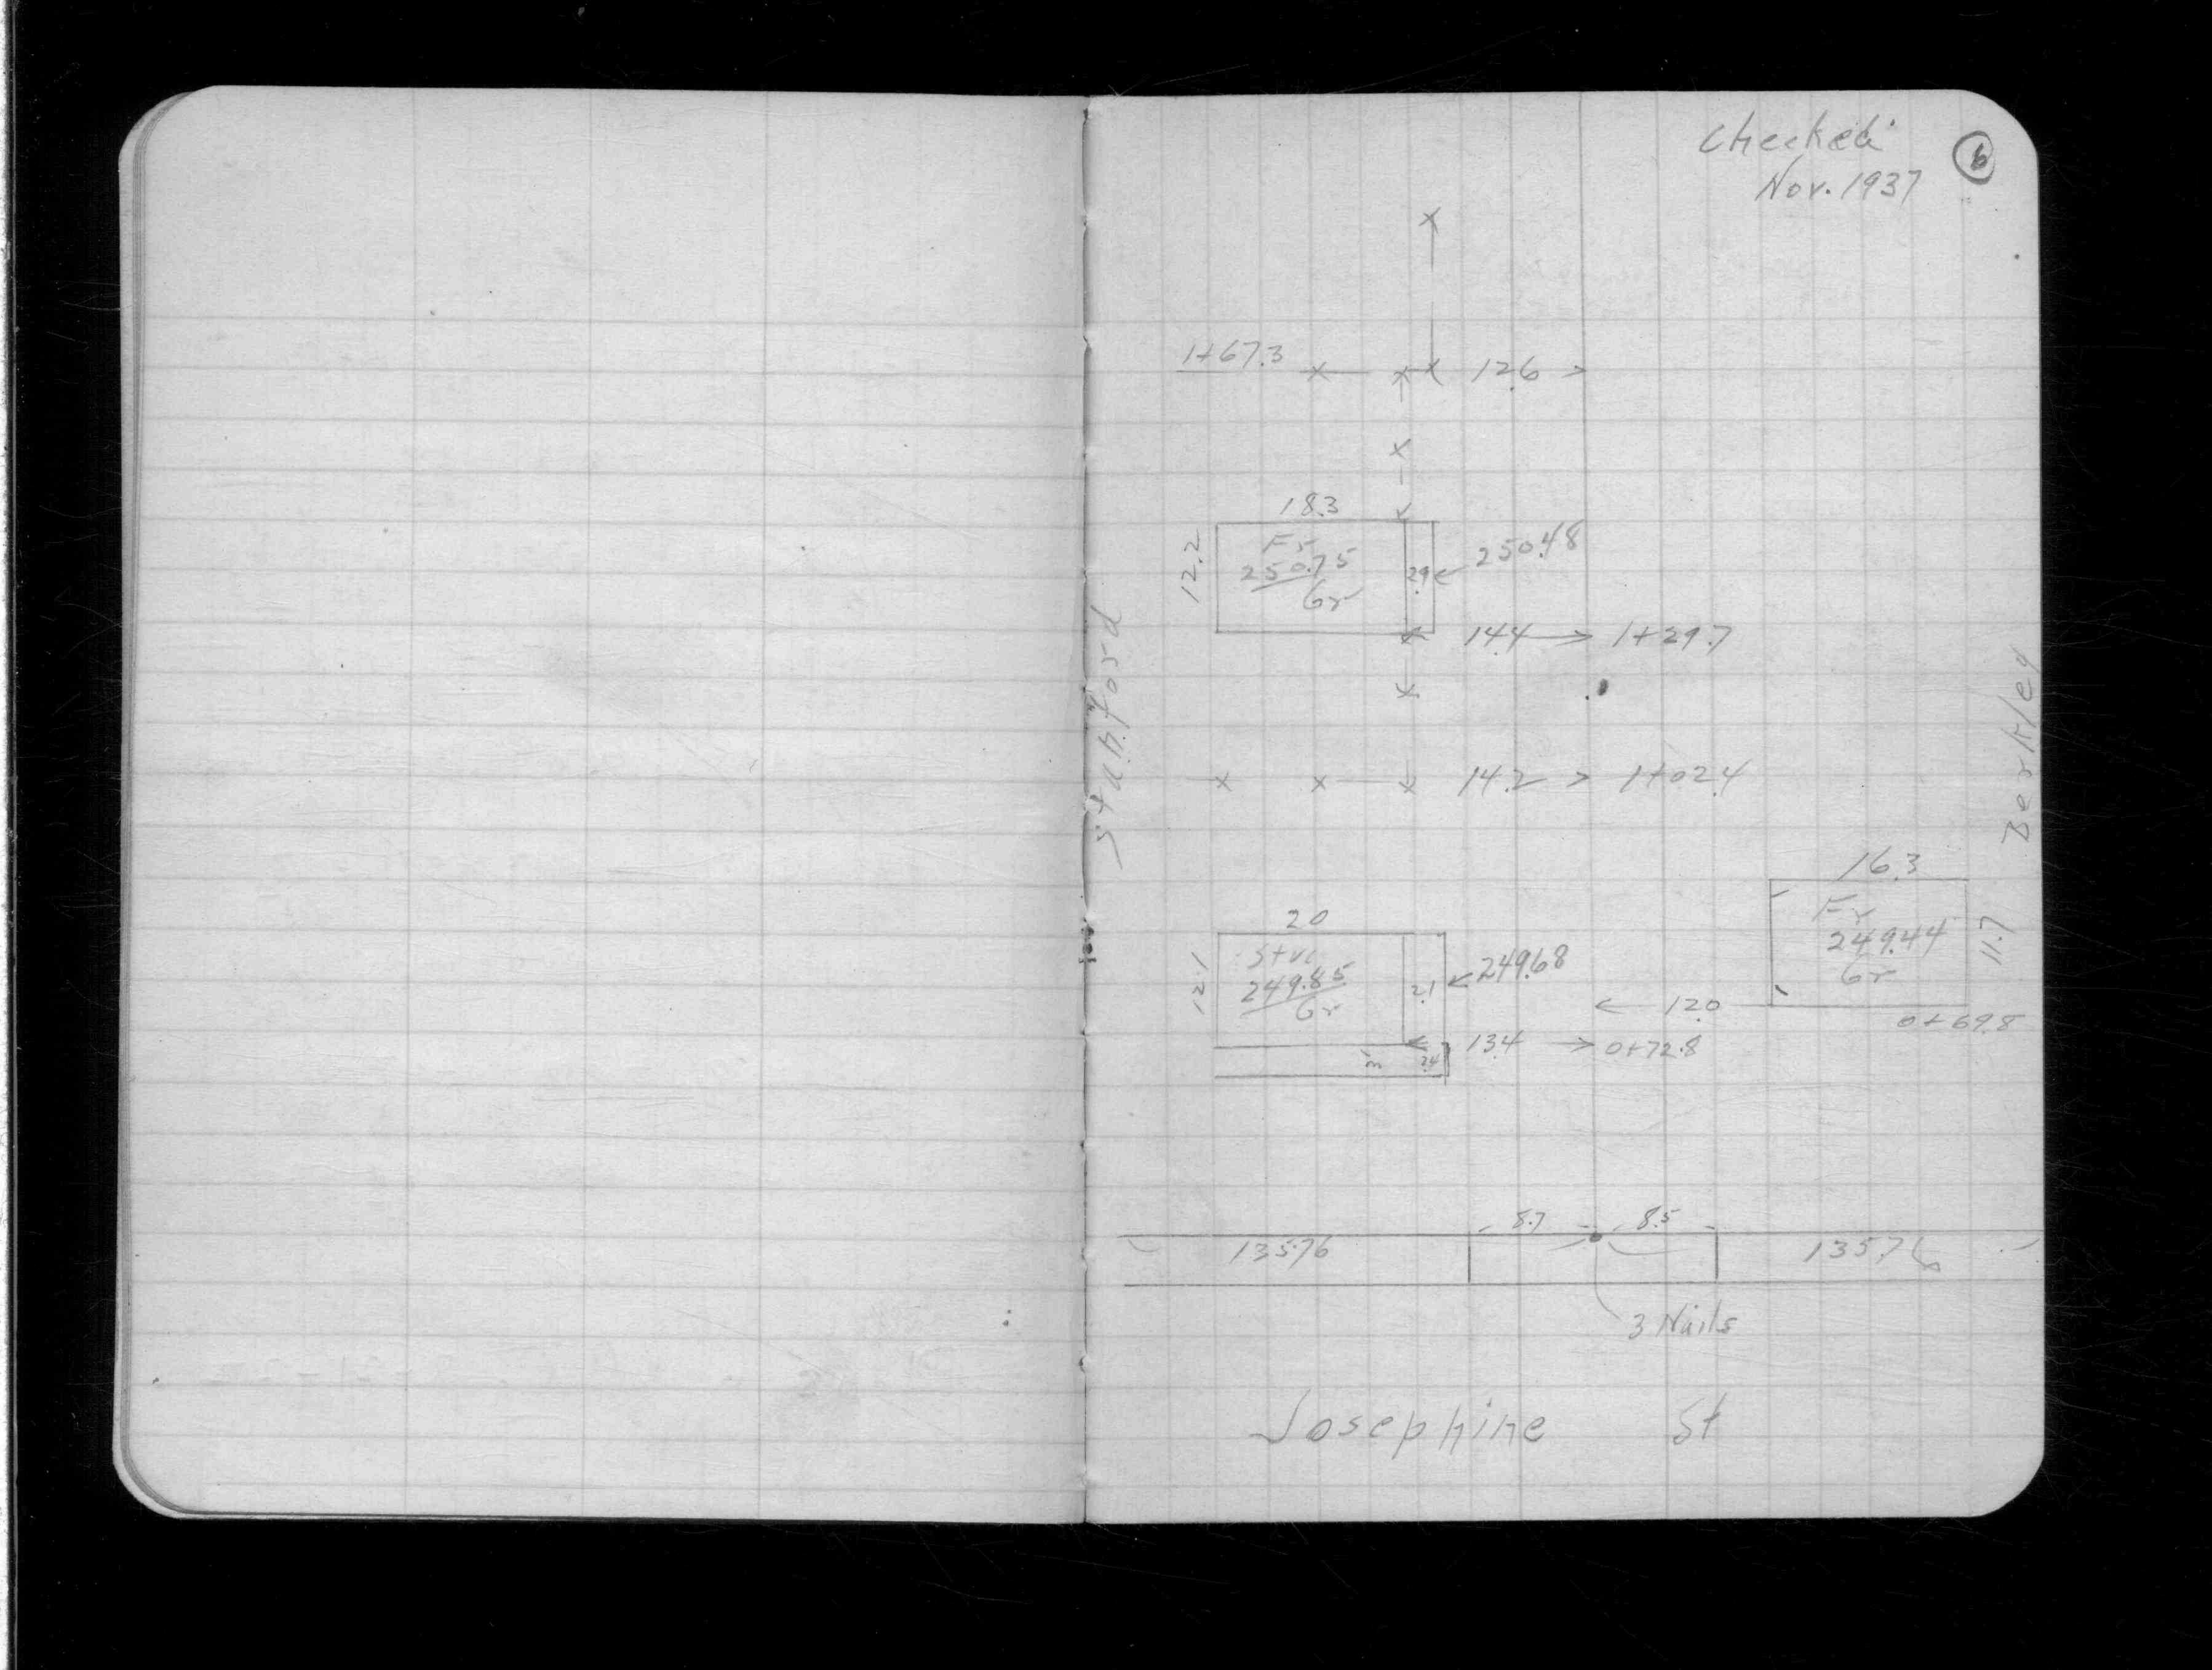 Checked
Nov. 1937
6
1+67.3
12.6
18.3
12.2
Fr
250.75
Gr
2.9
250.48
14.4
1+29.7
Stanford
Berkley
14.2
1+02.4
16.3
Fr
249.44
Gr
11.7
12.0
0+69.8
20
12.1
Stuc
249.85
Gr
2.1
249.68
13.4
0+72.8
3
2.4
8.7
8.5
135.76
135.76
3 Nails
Josephine St